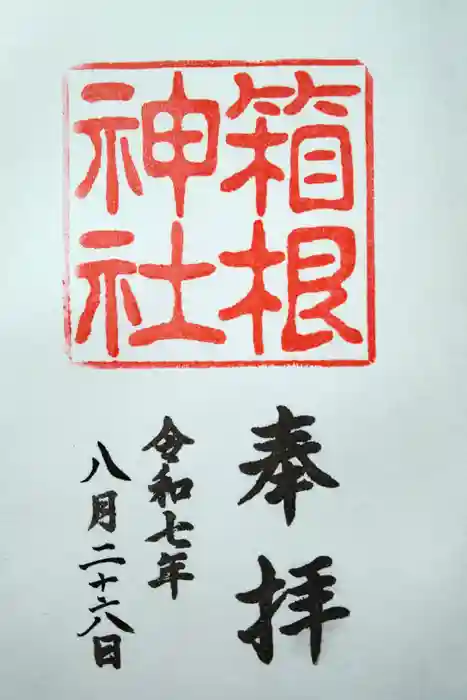 箱根
神社
奉拝
令和七年
八月二十六日